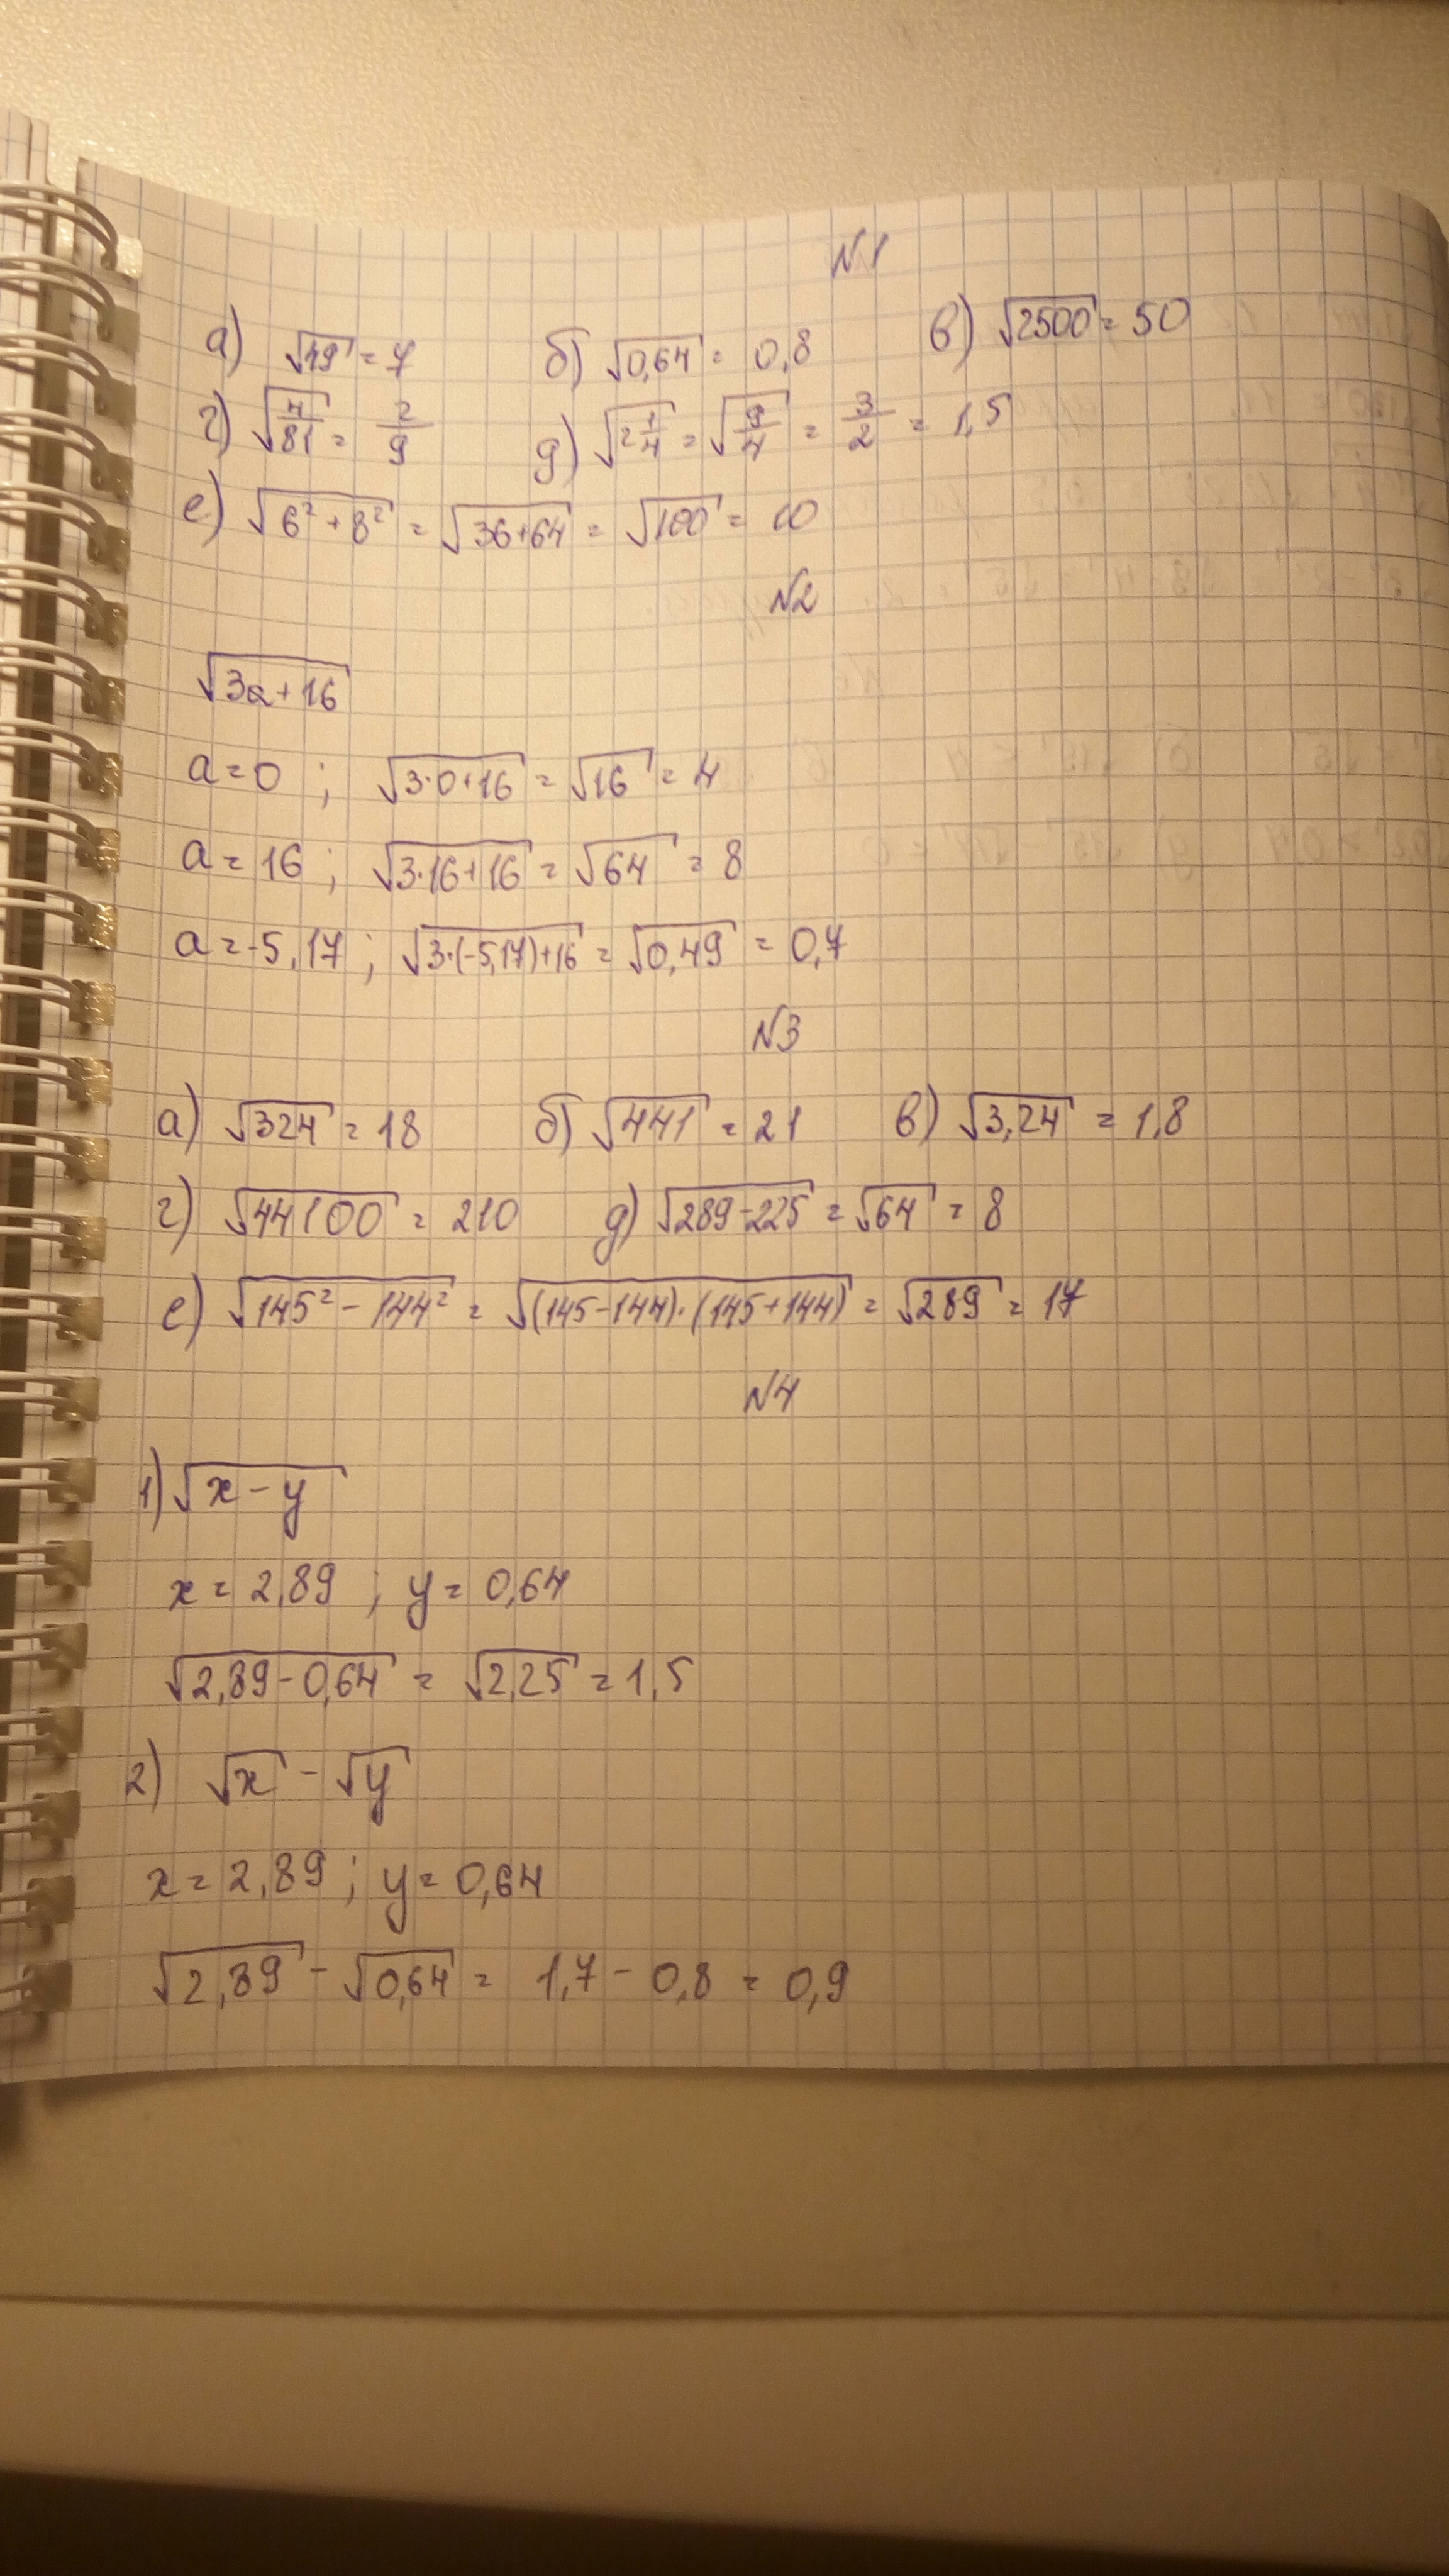 N1
а) √49 = 7 б) √0,64 = 0,8 в) √2500 = 50
г) √(4/81) = 2/9 д) √(2 1/4) = √(9/4) = 3/2 = 1,5
е) √(6² + 8²) = √(36+64) = √100 = 10
N2
√(3a+16)
a = 0 ; √(3·0+16) = √16 = 4
a = 16 ; √(3·16+16) = √64 = 8
a = -5,17 ; √(3·(-5,17)+16) = √0,49 = 0,7
N3
а) √324 = 18 б) √441 = 21 в) √3,24 = 1,8
г) √44100 = 210 д) √(289-225) = √64 = 8
е) √(145² - 144²) = √((145-144)·(145+144)) = √289 = 17
N4
1) √(x - y)
x = 2,89 ; y = 0,64
√(2,89-0,64) = √2,25 = 1,5
2) √x - √y
x = 2,89 ; y = 0,64
√2,89 - √0,64 = 1,7 - 0,8 = 0,9